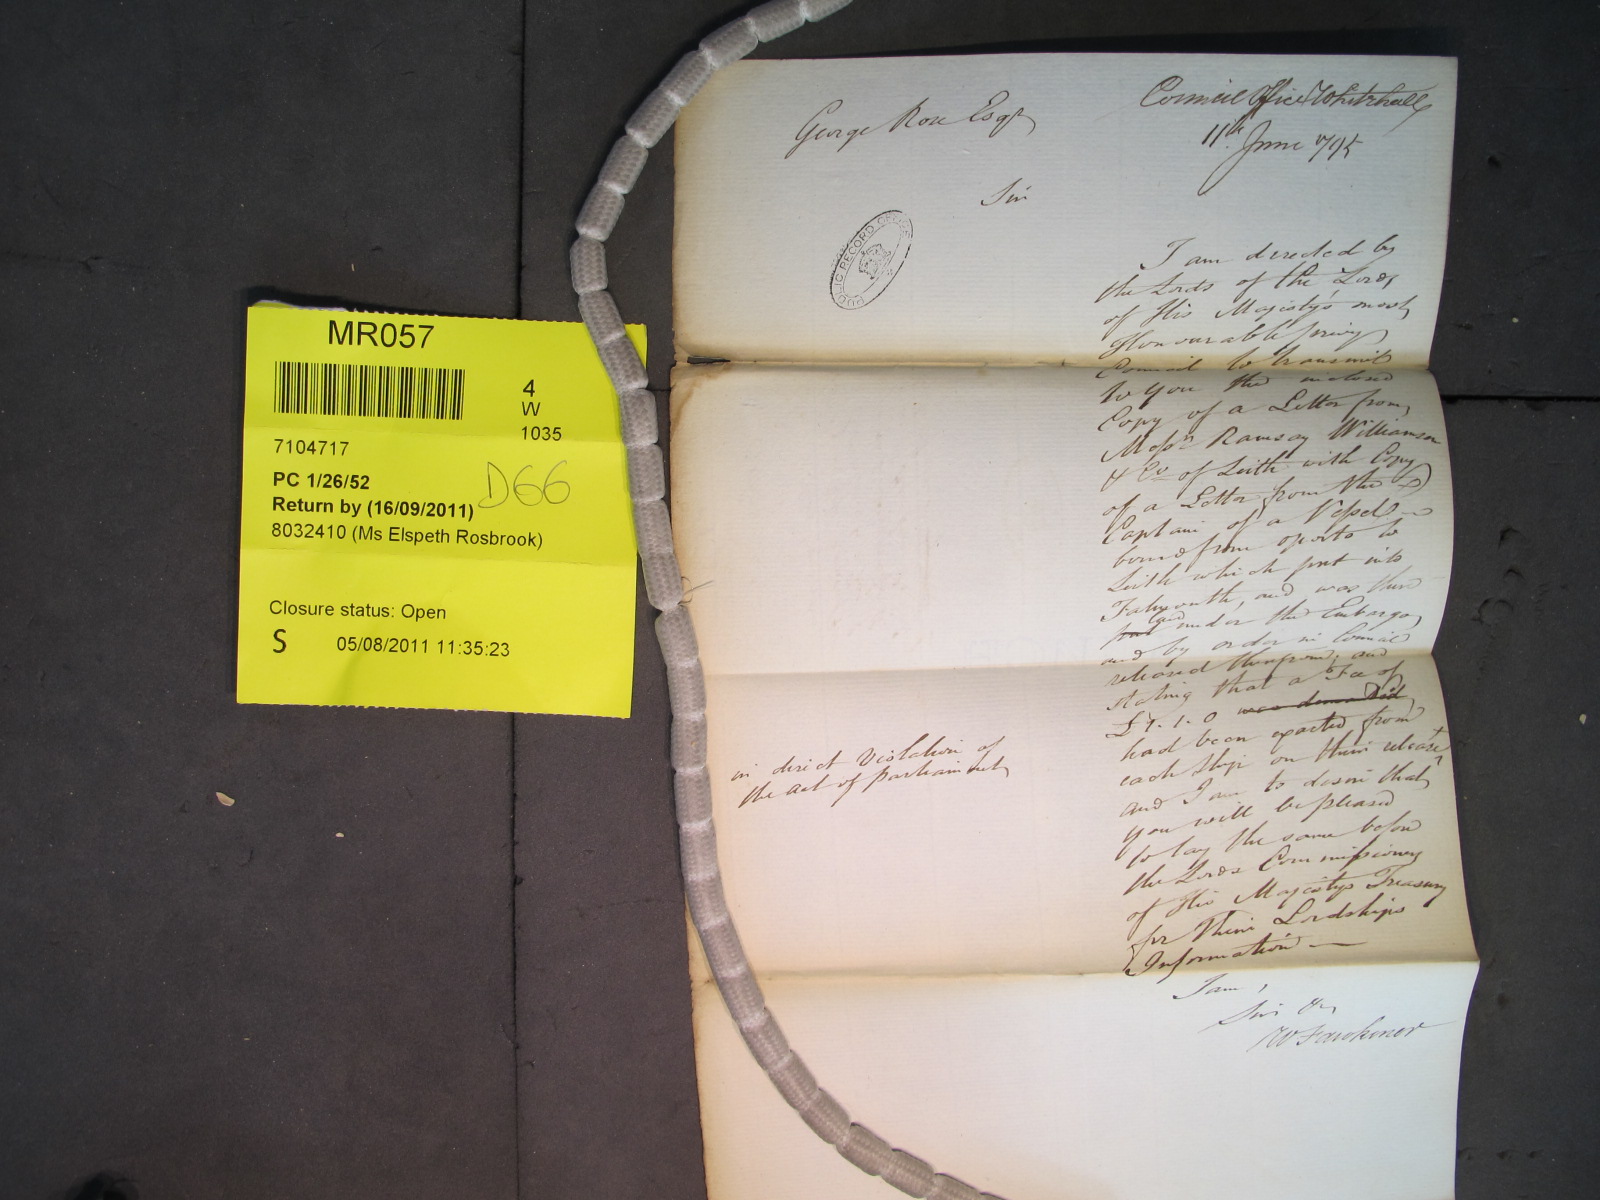 MR057
4
W
1035
7104717
PC 1/26/52
D66
Return by (16/09/2011)
8032410 (Ms Elspeth Rosbrook)
Closure status: Open
S 05/08/2011 11:35:23
George Rose Esqr
Council Office Whitehall
11th June 1795
Sir
PUBLIC RECORD OFFICE
I am directed by
the Lords of the Lords
of His Majesty's most
Honourable privy
Council to transmit
to You the inclosed
Copy of a Letter from
Messrs Ramsay Williamson
& Co of Leith with Copy
of a Letter from the
Captain of a Vessel
bound from oporto to
Leith which put into
Falmouth, and was there
put laid under the Embargo
and by order in Council
released therefrom; and
stating that a Fee of
£7.1.0 was demanded
had been exacted from
each Ship on their release
in direct Violation of
the act of parliament
and I am to desire that
You will be pleased
to lay the same before
the Lords Commissioners
of His Majesty's Treasury
for Their Lordships
Information
I am,
Sir &c
W Fawkener